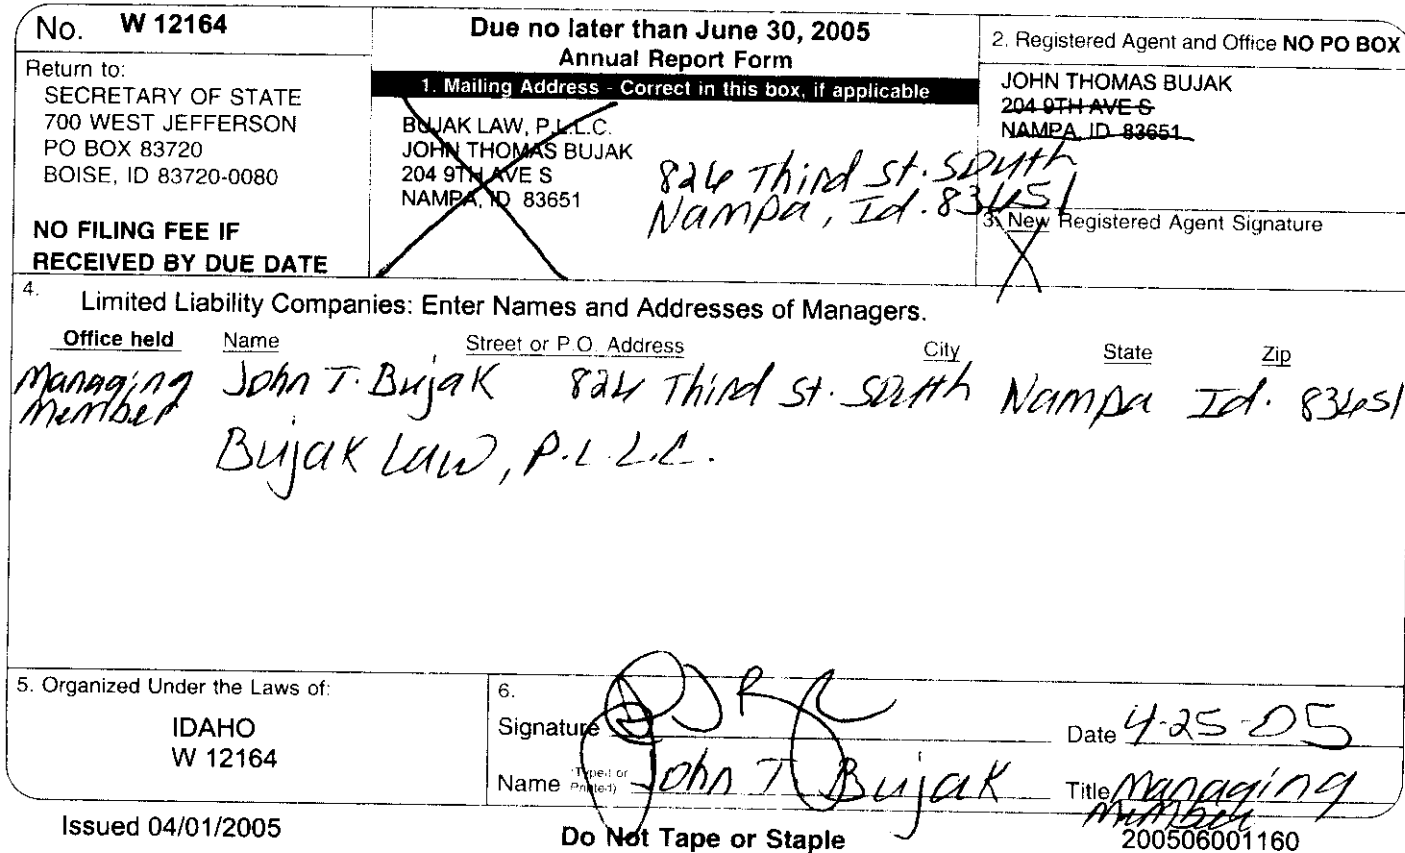 No. W 12164
Return to:
SECRETARY OF STATE
700 WEST JEFFERSON
PO BOX 83720
BOISE, ID 83720-0080
NO FILING FEE IF
RECEIVED BY DUE DATE
Due no later than June 30, 2005
Annual Report Form
1. Mailing Address - Correct in this box, if applicable
BUJAK LAW, P.L.L.C.
JOHN THOMAS BUJAK
204 9TH AVE S
NAMPA, ID 83651
824 Third St. South
Nampa, Id. 83651
2. Registered Agent and Office NO PO BOX
JOHN THOMAS BUJAK
204 9TH AVE S
NAMPA, ID 83651
3. New Registered Agent Signature
X
4.
Limited Liability Companies: Enter Names and Addresses of Managers.
Office held Name Street or P.O. Address City State Zip
Managing John T. Bujak 824 Third St. South Nampa Id. 83651
Member
Bujak Law, P.L.L.C.
5. Organized Under the Laws of:
IDAHO
W 12164
6.
Signature Date 4-25-05
Name (Typed or Printed) John T Bujak Title Managing
Member
Issued 04/01/2005 Do Not Tape or Staple 200506001160